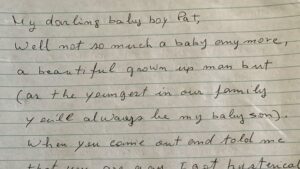 My darling baby boy Pat,
Well not so much a baby any more,
a beautiful grown up man but
(as the youngest in our family
you'll always be my baby son).
When you came out and told me
that you are gay I got hysterical